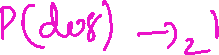 P(dog) →₂ 1